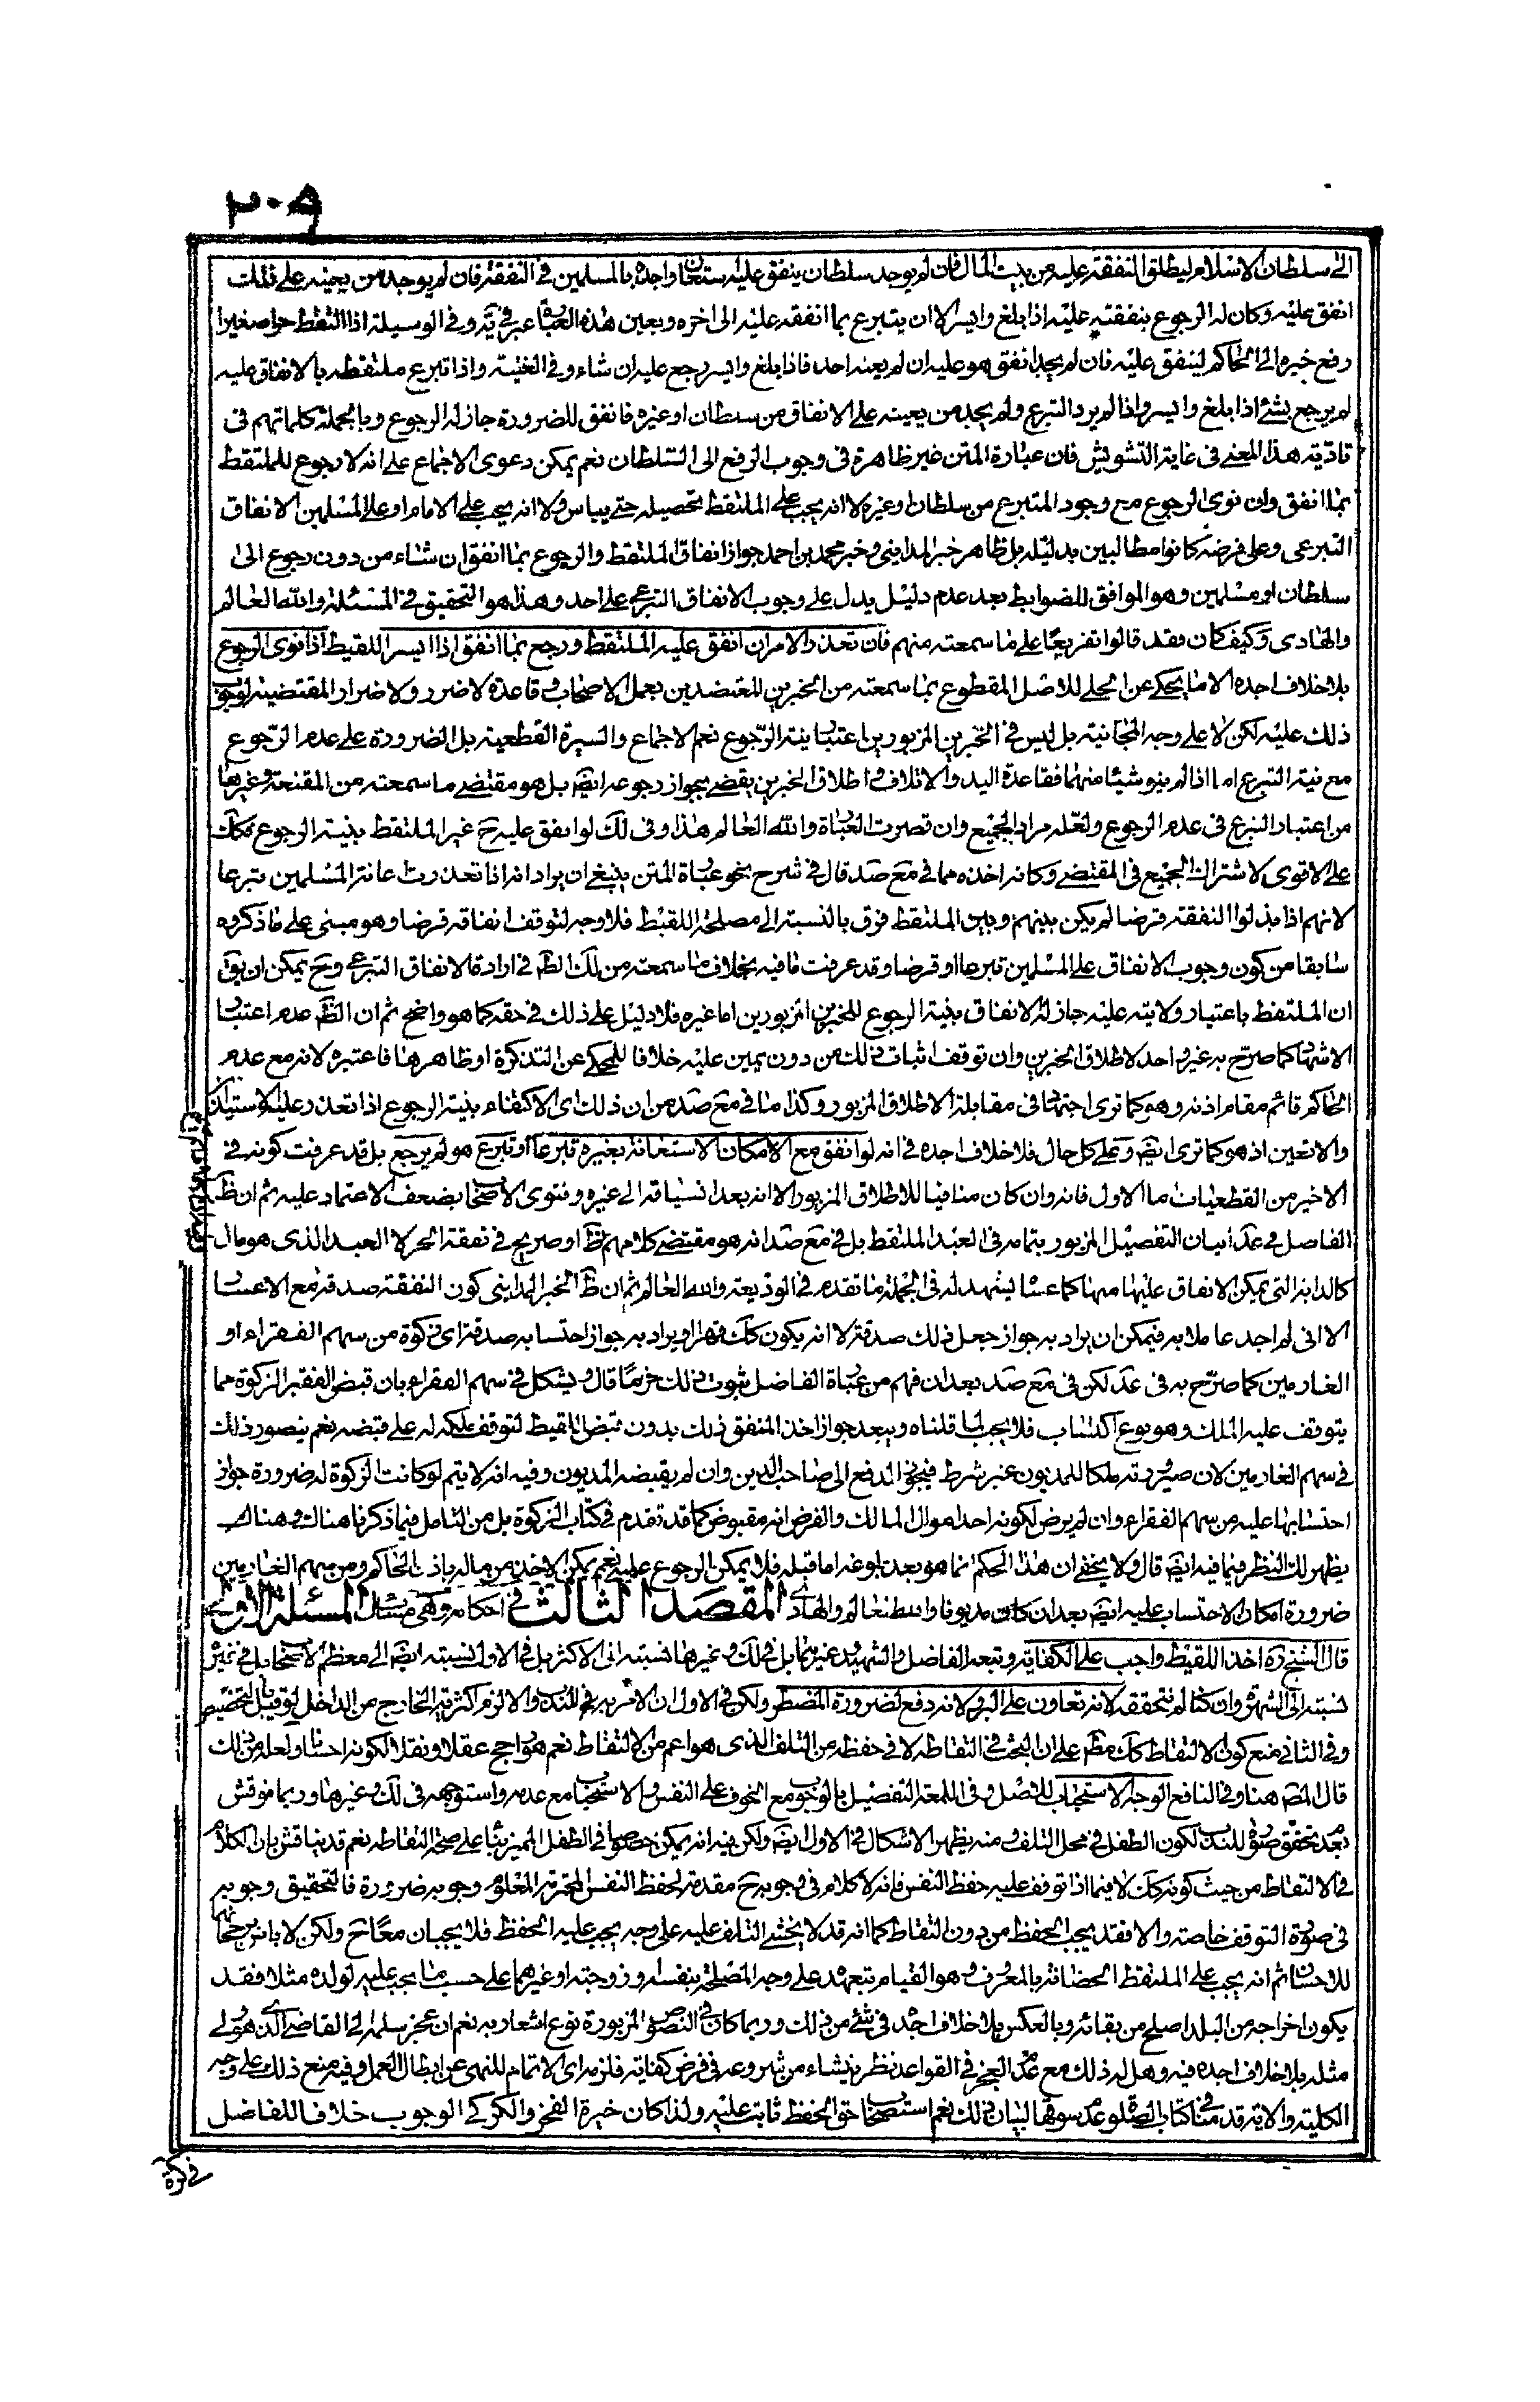 ٢٠٩
الى سلطان الاسلام ليطلق النفقة عليه من بيت المال فان لم يوجد سلطان ينفق عليه استعان واجده بالمسلمين في النفقة فان لم يوجد من يعينه على ذلك
انفق عليه وكان له الرجوع بنفقته عليه اذا بلغ وايسر الا ان يتبرع بما انفقه عليه الى اخره وبعين هذه العبارة عبر في يه وفي الوسيلة اذا التقط حرا صغيرا
رفع خبره الى الحاكم لينفق عليه فان لم يجد انفق هو عليه ان لم يعنه احد فاذا بلغ وايسر رجع عليه ان شاء وفي الغنية واذا تبرع ملتقطه بالانفاق عليه
لم يرجع بشئ اذا بلغ وايسر واذا لم يرد التبرع ولم يجد من يعينه على الانفاق من سلطان او غيره فانفق للضرورة جاز له الرجوع وبالجملة كلماتهم في
تادية هذا المعنى في غاية التشويش فان عبارة المتن غير ظاهرة في وجوب الرفع الى السلطان نعم يمكن دعوى الاجماع على انه لا رجوع للملتقط
بما انفق وان نوى الرجوع مع وجود المتبرع من سلطان او غيره لا انه يجب على الملتقط تحصيله حتى ييأس ولا انه يجب على الامام او على المسلمين الانفاق
التبرعى وعلى فرضه كانوا مطالبين بدليله بل ظاهر خبر المدايني وخبر محمد بن احمد جواز انفاق الملتقط والرجوع بما انفق ان شاء من دون رجوع الى
سلطان او مسلمين وهو الموافق للضوابط بعد عدم دليل يدل على وجوب الانفاق التبرعى على احد وهذا هو التحقيق في المسئلة والله العالم
والهادى وكيف كان فقد قالوا تفريعا على ما سمعته منهم فان تعذر الامران انفق عليه الملتقط ورجع بما انفق اذا ايسر اللقيط اذا نوى الرجوع
بلا خلاف اجده الا ما يحكى عن الحلي للاصل المقطوع بما سمعته من الخبرين المعتضدين بعمل الاصحاب وقاعدة لا ضرر ولا ضرار المقتضية لوجوب
ذلك عليه لكن لا على وجه المجانية بل ليس في الخبرين المزبورين اعتبار نية الرجوع نعم الاجماع والسيرة القطعية بل الضرورة على عدم الرجوع
مع نية التبرع اما اذا لم ينو شيئا منهما فقاعدة اليد والاتلاف واطلاق الخبرين يقضى بجواز رجوعه ايضا بل هو مقتضى ما سمعته من المقنعة وغيرها
من اعتبار التبرع في عدم الرجوع ولعله مراد الجميع وان قصرت العبارة والله العالم هذا وفي لك لو انفق عليه ح غير الملتقط بنية الرجوع فكك
على الاقوى لاشتراك الجميع في المقتضى وكانه اخذه مما في مع صد قال في شرح نحو عبارة المتن ينبغي ان يراد انه اذا تعذرت اعانة المسلمين تبرعا
لانهم اذا بذلوا النفقة قرضا لم يكن بينهم وبين الملتقط فرق بالنسبة الى مصلحة اللقيط فلا وجه لتوقف انفاقه قرضا وهو مبنى على ما ذكروه
سابقا من كون وجوب الانفاق على المسلمين تبرعا او قرضا وقد عرفت ما فيه بخلاف ما سمعته من لك الظ في ارادة الانفاق التبرعى وح يمكن ان يق
ان الملتقط باعتبار ولايته عليه جاز له الانفاق بنية الرجوع للخبرين المزبورين اما غيره فلا دليل على ذلك في حقه كما هو واضح ثم ان الظ عدم اعتبار
الاشهاد كما صرح به غير واحد لاطلاق الخبرين وان توقف اثبات ذلك من دون يمين عليه خلافا للمحكى عن التذكرة او ظاهرها فاعتبره لانه مع عدم
الحاكم قائم مقام اذنه وهو كما ترى اجتهاد في مقابلة الاطلاق المزبور وكذا ما في مع صد من ان ذلك اى الاكتفاء بنية الرجوع اذا تعذر عليه الاستيذان
والا تعين اذ هو كما ترى ايضا وعلى كل حال فلا خلاف اجده في انه لو انفق مع الامكان الاستعانة بغيره تبرعا او تبرع هو لم يرجع بل قد عرفت كونه في
الاخير من القطعيات اما الاول فانه وان كان منافيا للاطلاق المزبور الا انه بعد انسياقه الى غيره وفتوى الاصحاب يضعف الاعتماد عليه ثم ان ظ
الفاضل في عد اتيان التفصيل المزبور بتمامه في العبد الملتقط بل في مع صد انه هو مقتضى كلامهم ظ او صريح في نفقة الحر لا العبد الذى هو مال
كالدابة التى يمكن الانفاق عليها منها كما عساه يشهد له في الجملة ما تقدم في الوديعة والله العالم ثم ان ظ الخبر المدايني كون النفقة صدقة مع الاعسار
الا انى لم اجد عاملا به فيمكن ان يراد به جواز جعل ذلك صدقة لا انه يكون كك قهرا او يراد به جواز احتسابه صدقة اى زكوة من سهم الفقراء او
الغارمين كما صرح به في عد لكن في مع صد بعد ان فهم من عبارة الفاضل ثبوت ذلك حزما قال ويشكل في سهم الفقراء بان قبض الفقير الزكوة مما
يتوقف عليه الملك وهو نوع اكتساب فلا يجب لما قلناه ويبعد جواز اخذ المنفق ذلك بدون قبض اللقيط لتوقف تملكه له على قبضه نعم يتصور ذلك
في سهم الغارمين لان صيرورته ملكا للمديون غير شرط فيجوز الدفع الى صاحب الدين وان لم يقبضه المديون وفيه انه لا يتم لو كانت الزكوة له ضرورة جواز
احتسابها عليه من سهم الفقراء وان لم يرض لكونه احد اموال المالك والفرض انه مقبوض كما قد تقدم في كتاب الزكوة بل من التامل فيما ذكرنا هناك وهنا
يظهر لك النظر فيما فيه ايضا قال ولا يخفى ان هذا الحكم انما هو بعد بلوغه اما قبله فلا يمكن الرجوع عليه نعم يمكن الاخذ من ماله باذن الحاكم ومن سهم الغارمين
ضرورة امكان الاحتساب عليه ايضا بعد ان كان مديونا والله تعالى العالم والهادى المقصد الثالث في احكامه وهى مسائل المسئلة الاولى
قال الشيخ ره اخذ اللقيط واجب على الكفاية وتبعه الفاضل والشهيد وغيرهما بل في لك وغيرها نسبته الى الاكثر بل في الاول نسبته ايضا الى معظم الاصحاب بل في غيرها
نسبته الى الشهرة وان كنا لم نتحققه لانه تعاون على البر ولانه دفع لضرورة المضطر ولكن في الاول ان الامر به للندب والا لزم اكثرية الخارج من الداخل لو قيل بالتخصيص
وفي الثانى منع كون الالتقاط كك مط على ان البحث في التقاطه لا في حفظه من التلف الذى هو اعم من الالتقاط نعم هو راجح عقلا ونقلا لكونه احسانا ولعله من ذلك
قال المص هنا وفي النافع الوجه الاستحباب للاصل وفي اللمعة التفصيل بالوجوب مع الخوف على النفس والاستحباب مع عدمه واستوجهه في لك وغيرها وربما نوقش
بعد تحقق صورة للندب لكون الطفل في محل التلف ومنه يظهر الاشكال في الاول ايضا ولكن فيه انه يمكن خصوصا في الطفل المميز بناء على صحة التقاطه نعم قد يناقش بان الكلام
في الالتقاط من حيث كونه كك لا فيما اذا توقف عليه حفظ النفس فانه لا كلام في وجوبه ح مقدمة لحفظ النفس المحترمة المعلوم وجوبه ضرورة فالتحقيق وجوبه
في صورة التوقف خاصة والا فقد يجب الحفظ من دون التقاط كما انه قد لا يخشى التلف عليه على وجه يجب عليه الحفظ فلا يجبان معا ح ولكن لا باس برجحانهما
للاحسان ثم انه يجب على الملتقط الحضانة بالمعروف وهو القيام بتعهده على وجه المصلحة بنفسه او زوجته او غيرهما على حسب ما يجب عليه لولده مثلا فقد
يكون اخراجه من البلد اصلح من بقائه وبالعكس بلا خلاف اجد في شئ من ذلك وربما كان في النصوص المزبورة نوع اشعار به نعم ان عجز سلمه الى القاضى الذى هو ولى
مثله بلا خلاف اجده فيه وهل له ذلك مع عدم العجز في القواعد نظر ينشاء من شروعه في فرض كفاية فلزمه اى الاتمام للنهى عن ابطال العمل وفيه منع ذلك على وجه
الكلية والاية قد منا في كتاب الصلوة عدم سوقها لبيان ذلك نعم استصحاب حق الحفظ ثابت عليه ولذا كان خيرة الفخر والكركى الوجوب خلافا للفاضل
في كرة